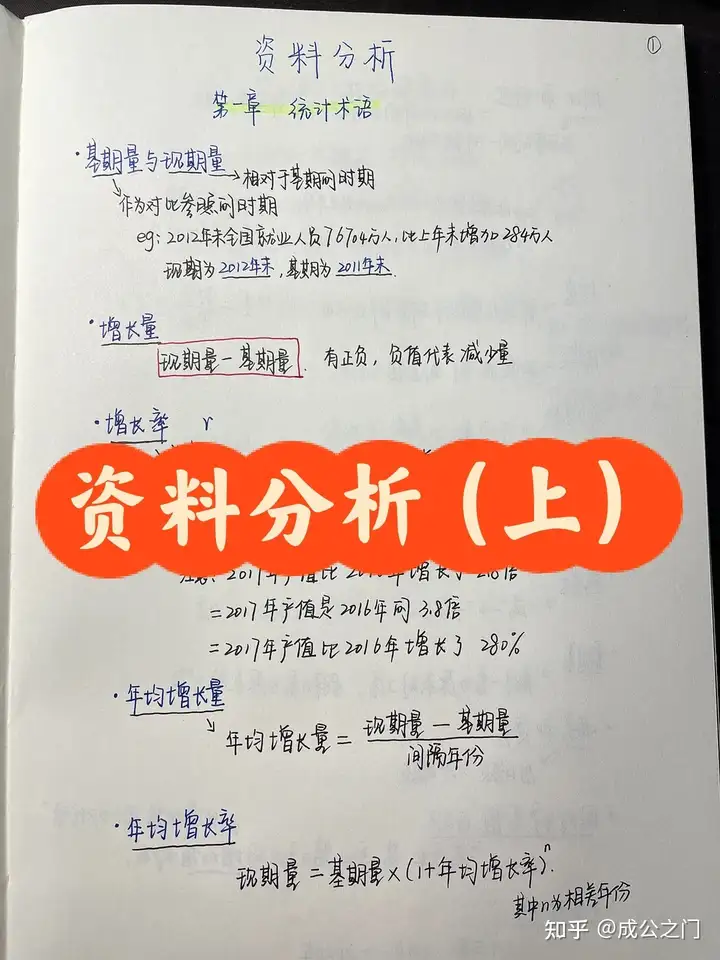 ①
资料分析
第一章 统计术语
·基期量与现期量→相对于基期的时期
作为对比参照的时期
eg：2012年末全国就业人员76704万人，比上年末增加284万人
现期为2012年末，基期为2011年末.
·增长量
现期量－基期量. 有正负，负值代表减少量
·增长率 r
资料分析（上）
注意：2017年产值比 年增长了2.8倍
=2017年产值是2016年的3.8倍
=2017年产值比2016年增长了280%
·年均增长量
年均增长量 = 现期量－基期量
间隔年份
·年均增长率
现期量=基期量×(1+年均增长率)ⁿ.
其中n为相差年份
知乎 @成公之门